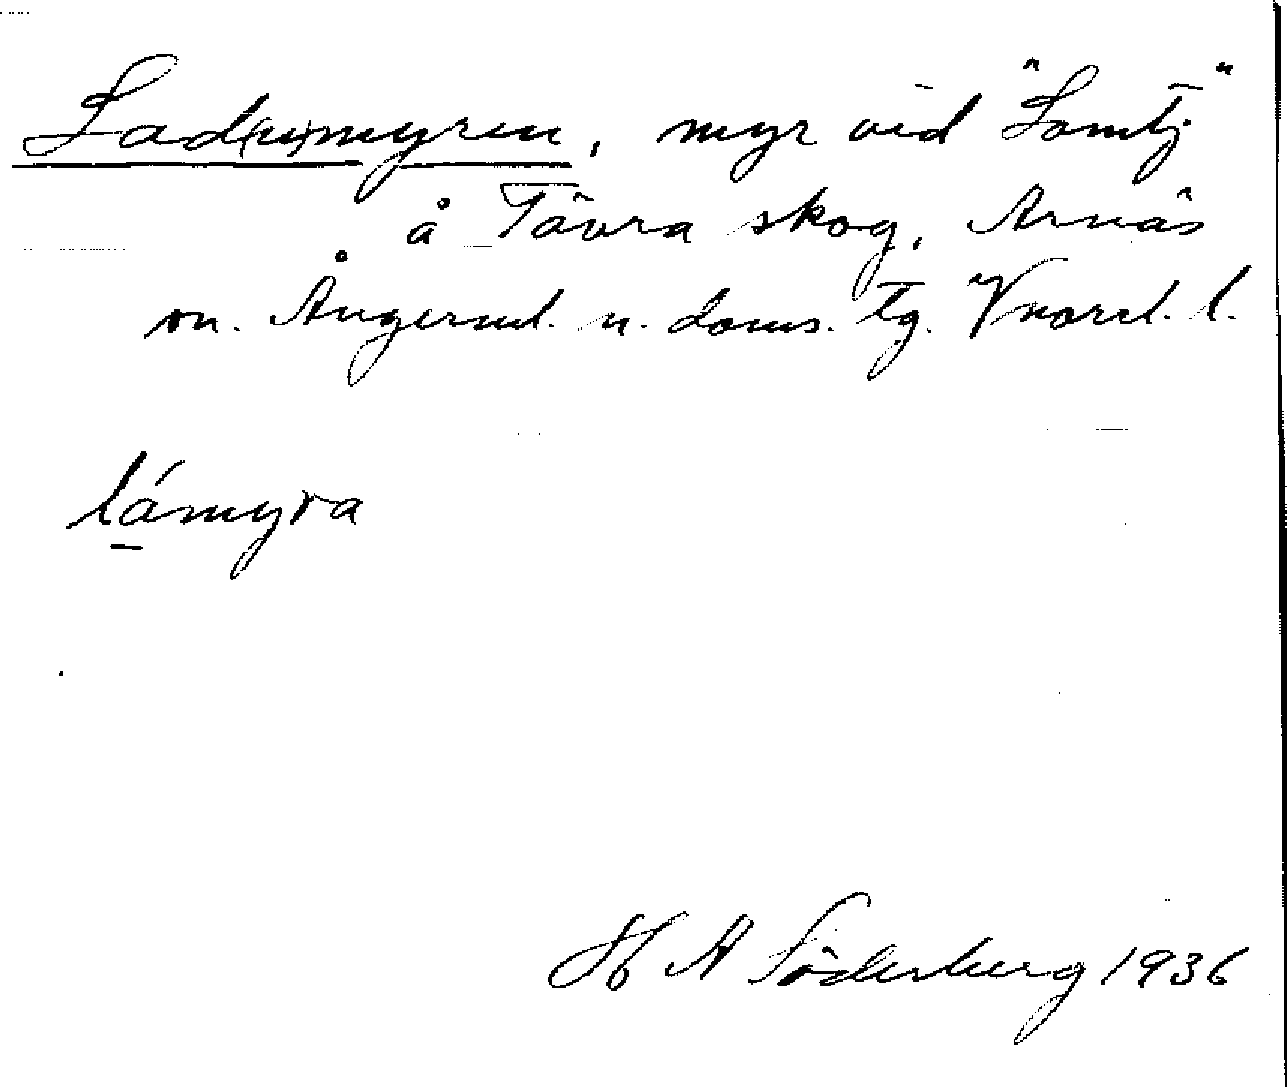 Lad(u)myren, myr vid "Lomtj"
å Tävra skog, Arnäs
sn. Ångerml. n. doms. tg. Vnorrl. l.
lámyra
H A Söderberg 1936